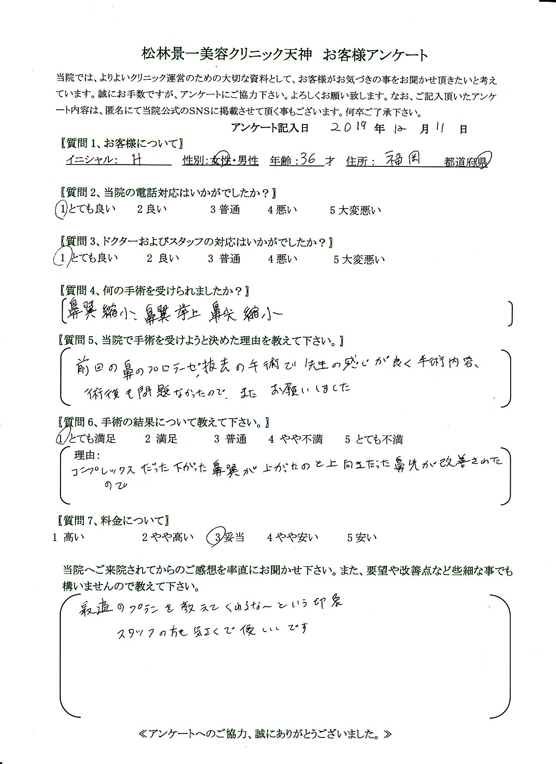 松林景一美容クリニック天神　お客様アンケート
当院では、よりよいクリニック運営のための大切な資料として、お客様がお気づきの事をお聞かせ頂きたいと考え
ています。誠にお手数ですが、アンケートにご協力下さい。よろしくお願い致します。なお、ご記入頂いたアンケ
ート内容は、匿名にて当院公式のSNSに掲載させて頂く事もございます。何卒ご了承下さい。
アンケート記入日　2019 年 12 月 11 日
〖質問1、お客様について〗
イニシャル： H　性別：女性・男性　年齢：36 才　住所： 福岡　都道府県
〖質問2、当院の電話対応はいかがでしたか？〗
1 とても良い　2 良い　3 普通　4 悪い　5 大変悪い
〖質問3、ドクターおよびスタッフの対応はいかがでしたか？〗
1 とても良い　2 良い　3 普通　4 悪い　5 大変悪い
〖質問4、何の手術を受けられましたか？〗
鼻翼縮小、鼻翼挙上 鼻尖縮小
〖質問5、当院で手術を受けようと決めた理由を教えて下さい。〗
前回の鼻のプロテーゼ抜去の手術で先生の感じが良く手術内容、
術後も問題なかったので、またお願いしました
〖質問6、手術の結果について教えて下さい。〗
1 とても満足　2 満足　3 普通　4 やや不満　5 とても不満
理由：
コンプレックスだった下がった鼻翼が上がったのと上向きだった鼻先が改善された
ので
〖質問7、料金について〗
1 高い　2 やや高い　3 妥当　4 やや安い　5 安い
当院へご来院されてからのご感想を率直にお聞かせ下さい。また、要望や改善点など些細な事でも
構いませんので教えて下さい。
最適のプランを教えてくれるな〜という印象
スタッフの方も気さくで優しいです
≪アンケートへのご協力、誠にありがとうございました。≫